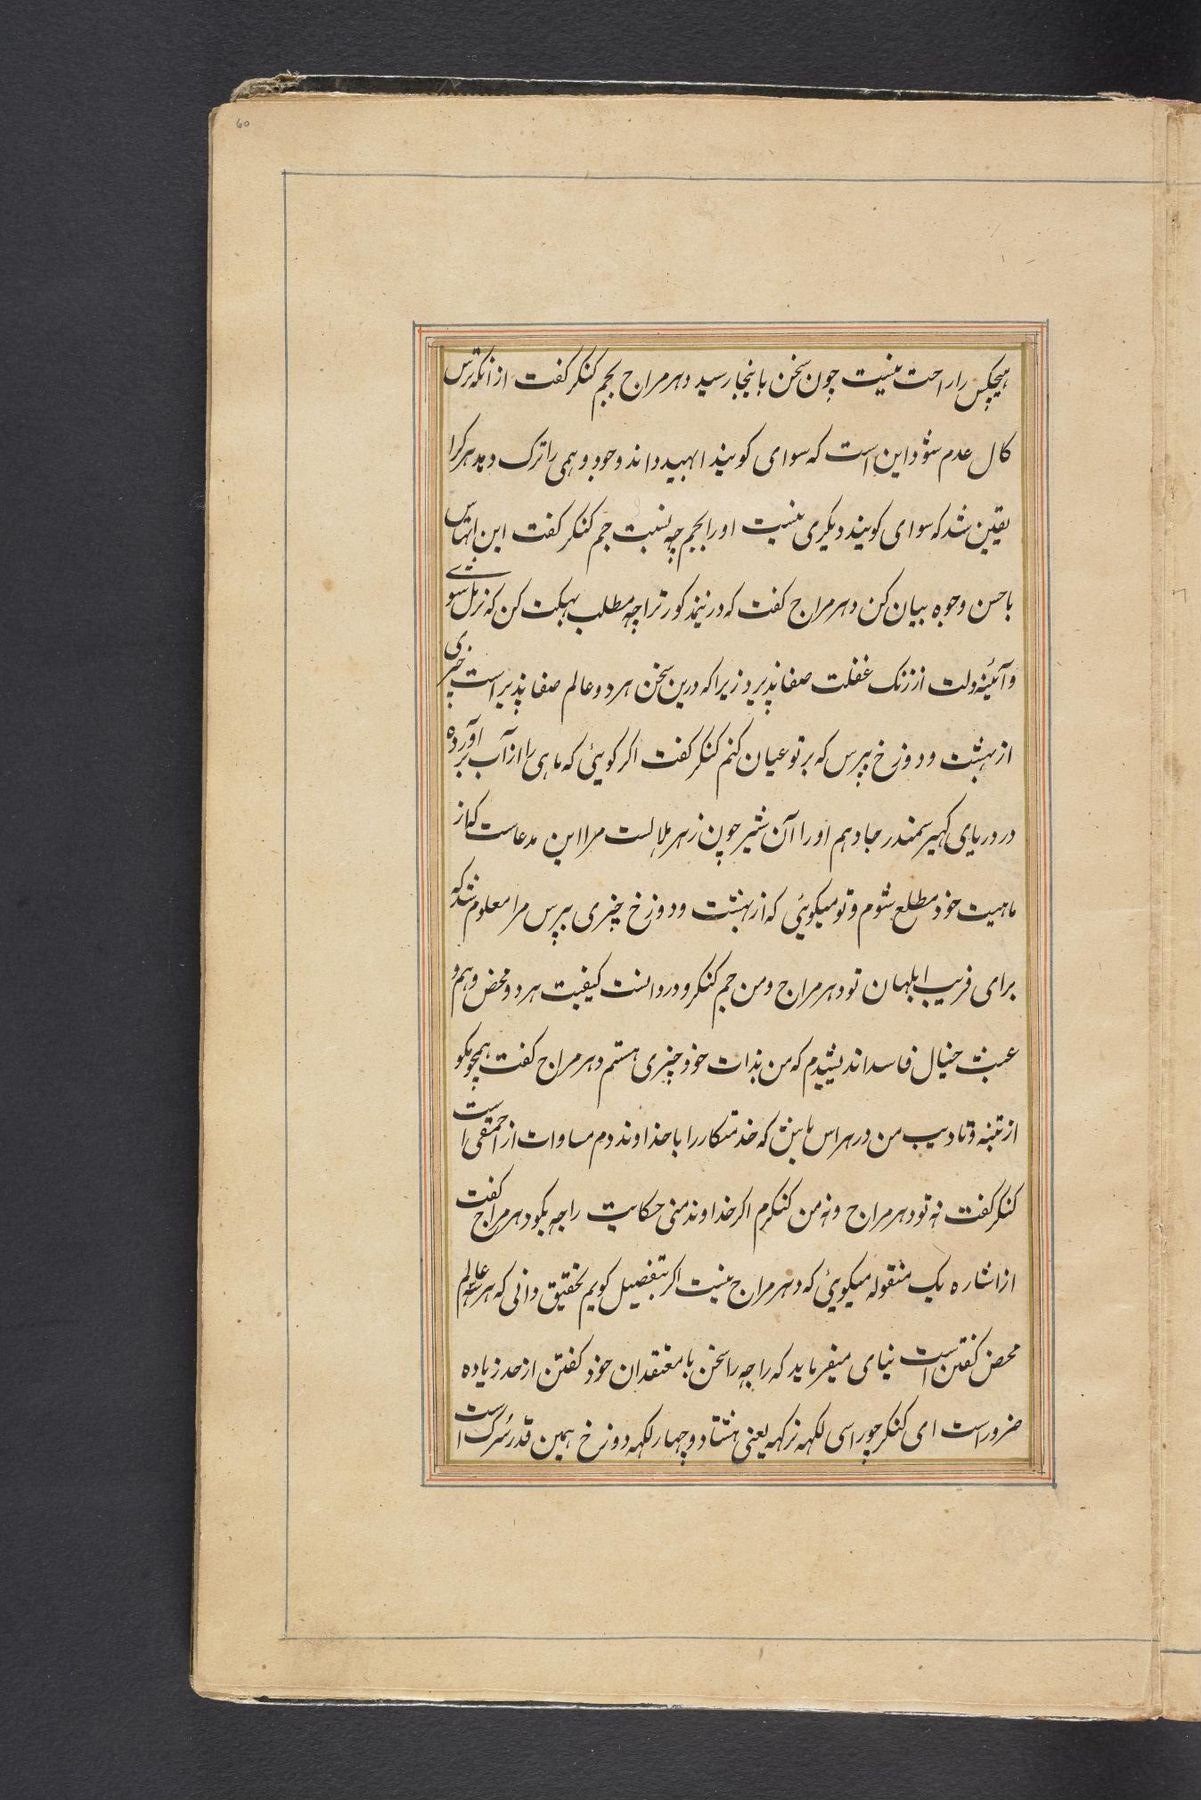 60
هیچکس را راحت نیست چون سخن باینجا رسید دهرمراج بجم کنکر گفت از آنکه ترس
کال عدم شود این است که سوای کوبیند ابهید داند وجود وهمی را ترک دهد هر کرا
یقین شد که سوای کوبیند دیکری نیست او را بجم چه نسبت جم کنکر گفت این اتهاس
باحسن وجوه بیان کن دهرمراج گفت که درینمذکور ترا چه مطلب بهکت کن که نرمل شوی
و آئینه دلت از زنک غفلت صفا پذیرد زیرا که درین سخن هر دو عالم صفا پذیر است چیزی
از بهشت و دوزخ بپرس که بر تو عیان کنم کنکر گفت اکر کوئی که ماهی را از آب بر آورده
در دریای کهیر سمندر جا دهم او را آن شیر چون زهر هلاهلست مرا این مدعاست که از
ماهیت خود مطلع شوم و تو میکوئی که از بهشت و دوزخ چیزی بپرس مرا معلوم شد که
برای فریب ابلهان تو دهرمراج و من جم کنکر و در دانست کیفیت هر دو محض وهم و
عبث خیال فاسد اندیشیدم که من بذات خود چیزی هستم دهرمراج گفت همچو مکو
از تنبه و تادیب من در هراس باش که خدمتکار را با خداوند دم مساوات از احمقی است
کنکر گفت نه تو دهرمراج و نه من کنکرم اکر خداوند منی حکایت راجه بکو دهرمراج گفت
از اشاره یک منقوله میکوئی که دهرمراج نیست اکر بتفصیل کویم تحقیق دانی که هر سه عالم
محض گفتن است نیای میفرماید که راجه را سخن با معتقدان خود گفتن از حد زیاده
ضرور است ای کنکر چوراسی لکهه نرکهه یعنی هشتاد و چهار لکهه دوزخ همین قدر است